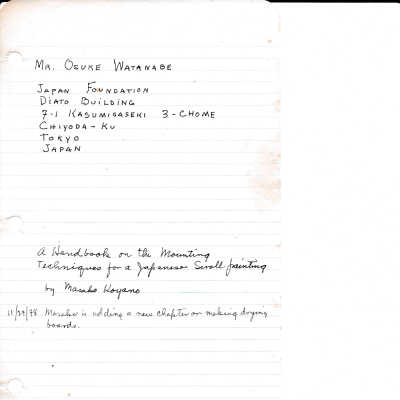 Mr. Osuke Watanabe
Japan Foundation
Diato Building
7-1 Kasumigaseki 3-Chome
Chiyoda-Ku
Tokyo
Japan
A Handbook on the Mounting
Techniques for a Japanese Scroll painting
by Masako Koyano
11/29/78 Masako is adding a new chapter on making drying
boards.